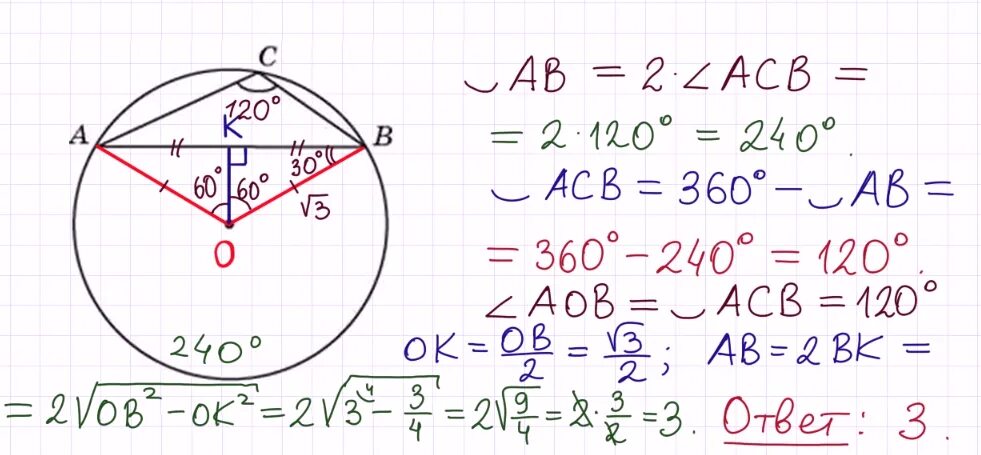 C
120°
A
K
B
30°
60°
60°
√3
O
240°
◡AB = 2·∠ACB =
= 2·120° = 240°.
◡ACB = 360° − ◡AB =
= 360° − 240° = 120°.
∠AOB = ◡ACB = 120°
OK = OB/2 = √3/2 ; AB = 2BK =
= 2√(OB² − OK²) = 2√(3⁴ − 3/4) = 2√(9/4) = 2·3/2 = 3. Ответ: 3.